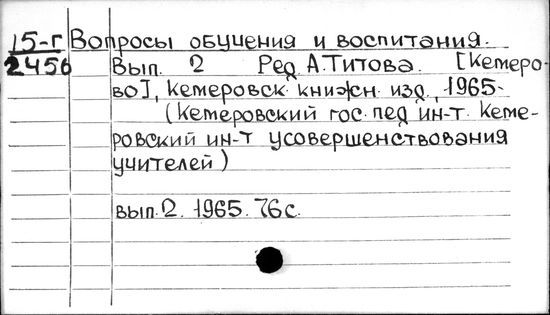 15-г Вопросы обучения и воспитания.
2456 Вып. 2 Ред. А.Титова. [Кемеро-
во], Кемеровск. книжн. изд., 1965-
(Кемеровский гос. пед. ин-т. Кеме-
ровский ин-т усовершенствования
учителей)
вып. 2. 1965. 76 с.